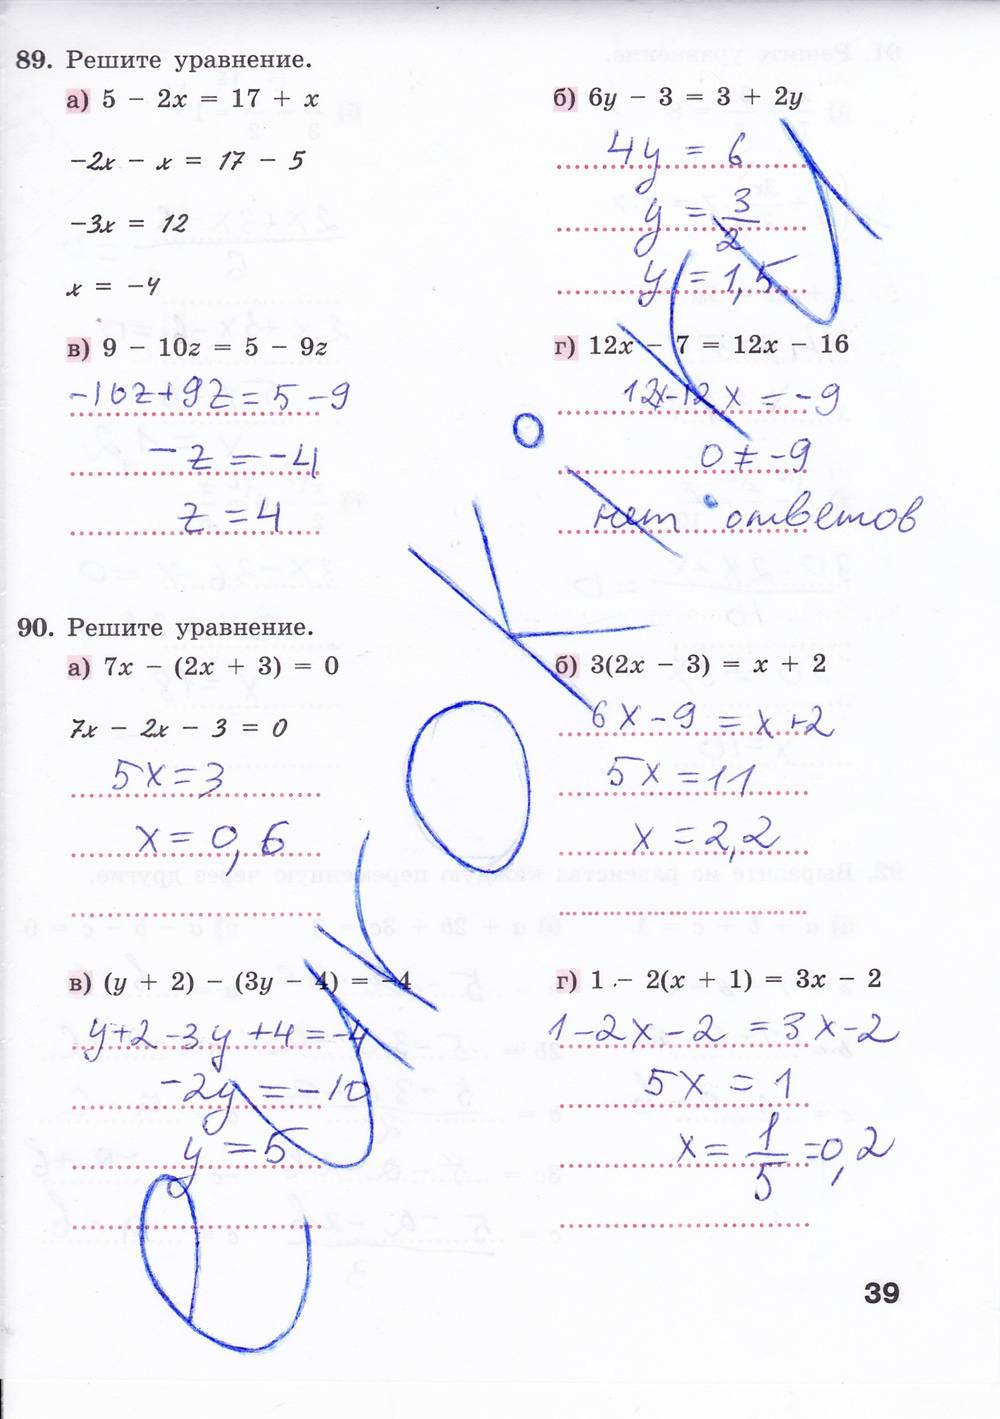 89. Решите уравнение.
а) 5 − 2x = 17 + x
−2x − x = 17 − 5
−3x = 12
x = −4
б) 6y − 3 = 3 + 2y
4y = 6
y = 3/2
y = 1,5
в) 9 − 10z = 5 − 9z
−10z+9z = 5 −9
−z = −4
z = 4
г) 12x − 7 = 12x − 16
12x−12x = −9
0 ≠ −9
нет ответов
90. Решите уравнение.
а) 7x − (2x + 3) = 0
7x − 2x − 3 = 0
5x = 3
x = 0,6
б) 3(2x − 3) = x + 2
6x − 9 = x + 2
5x = 11
x = 2,2
в) (y + 2) − (3y − 4) = −4
y+2 −3y +4 = −4
−2y = −10
y = 5
г) 1 − 2(x + 1) = 3x − 2
1−2x − 2 = 3x−2
5x = 1
x = 1/5 = 0,2
39